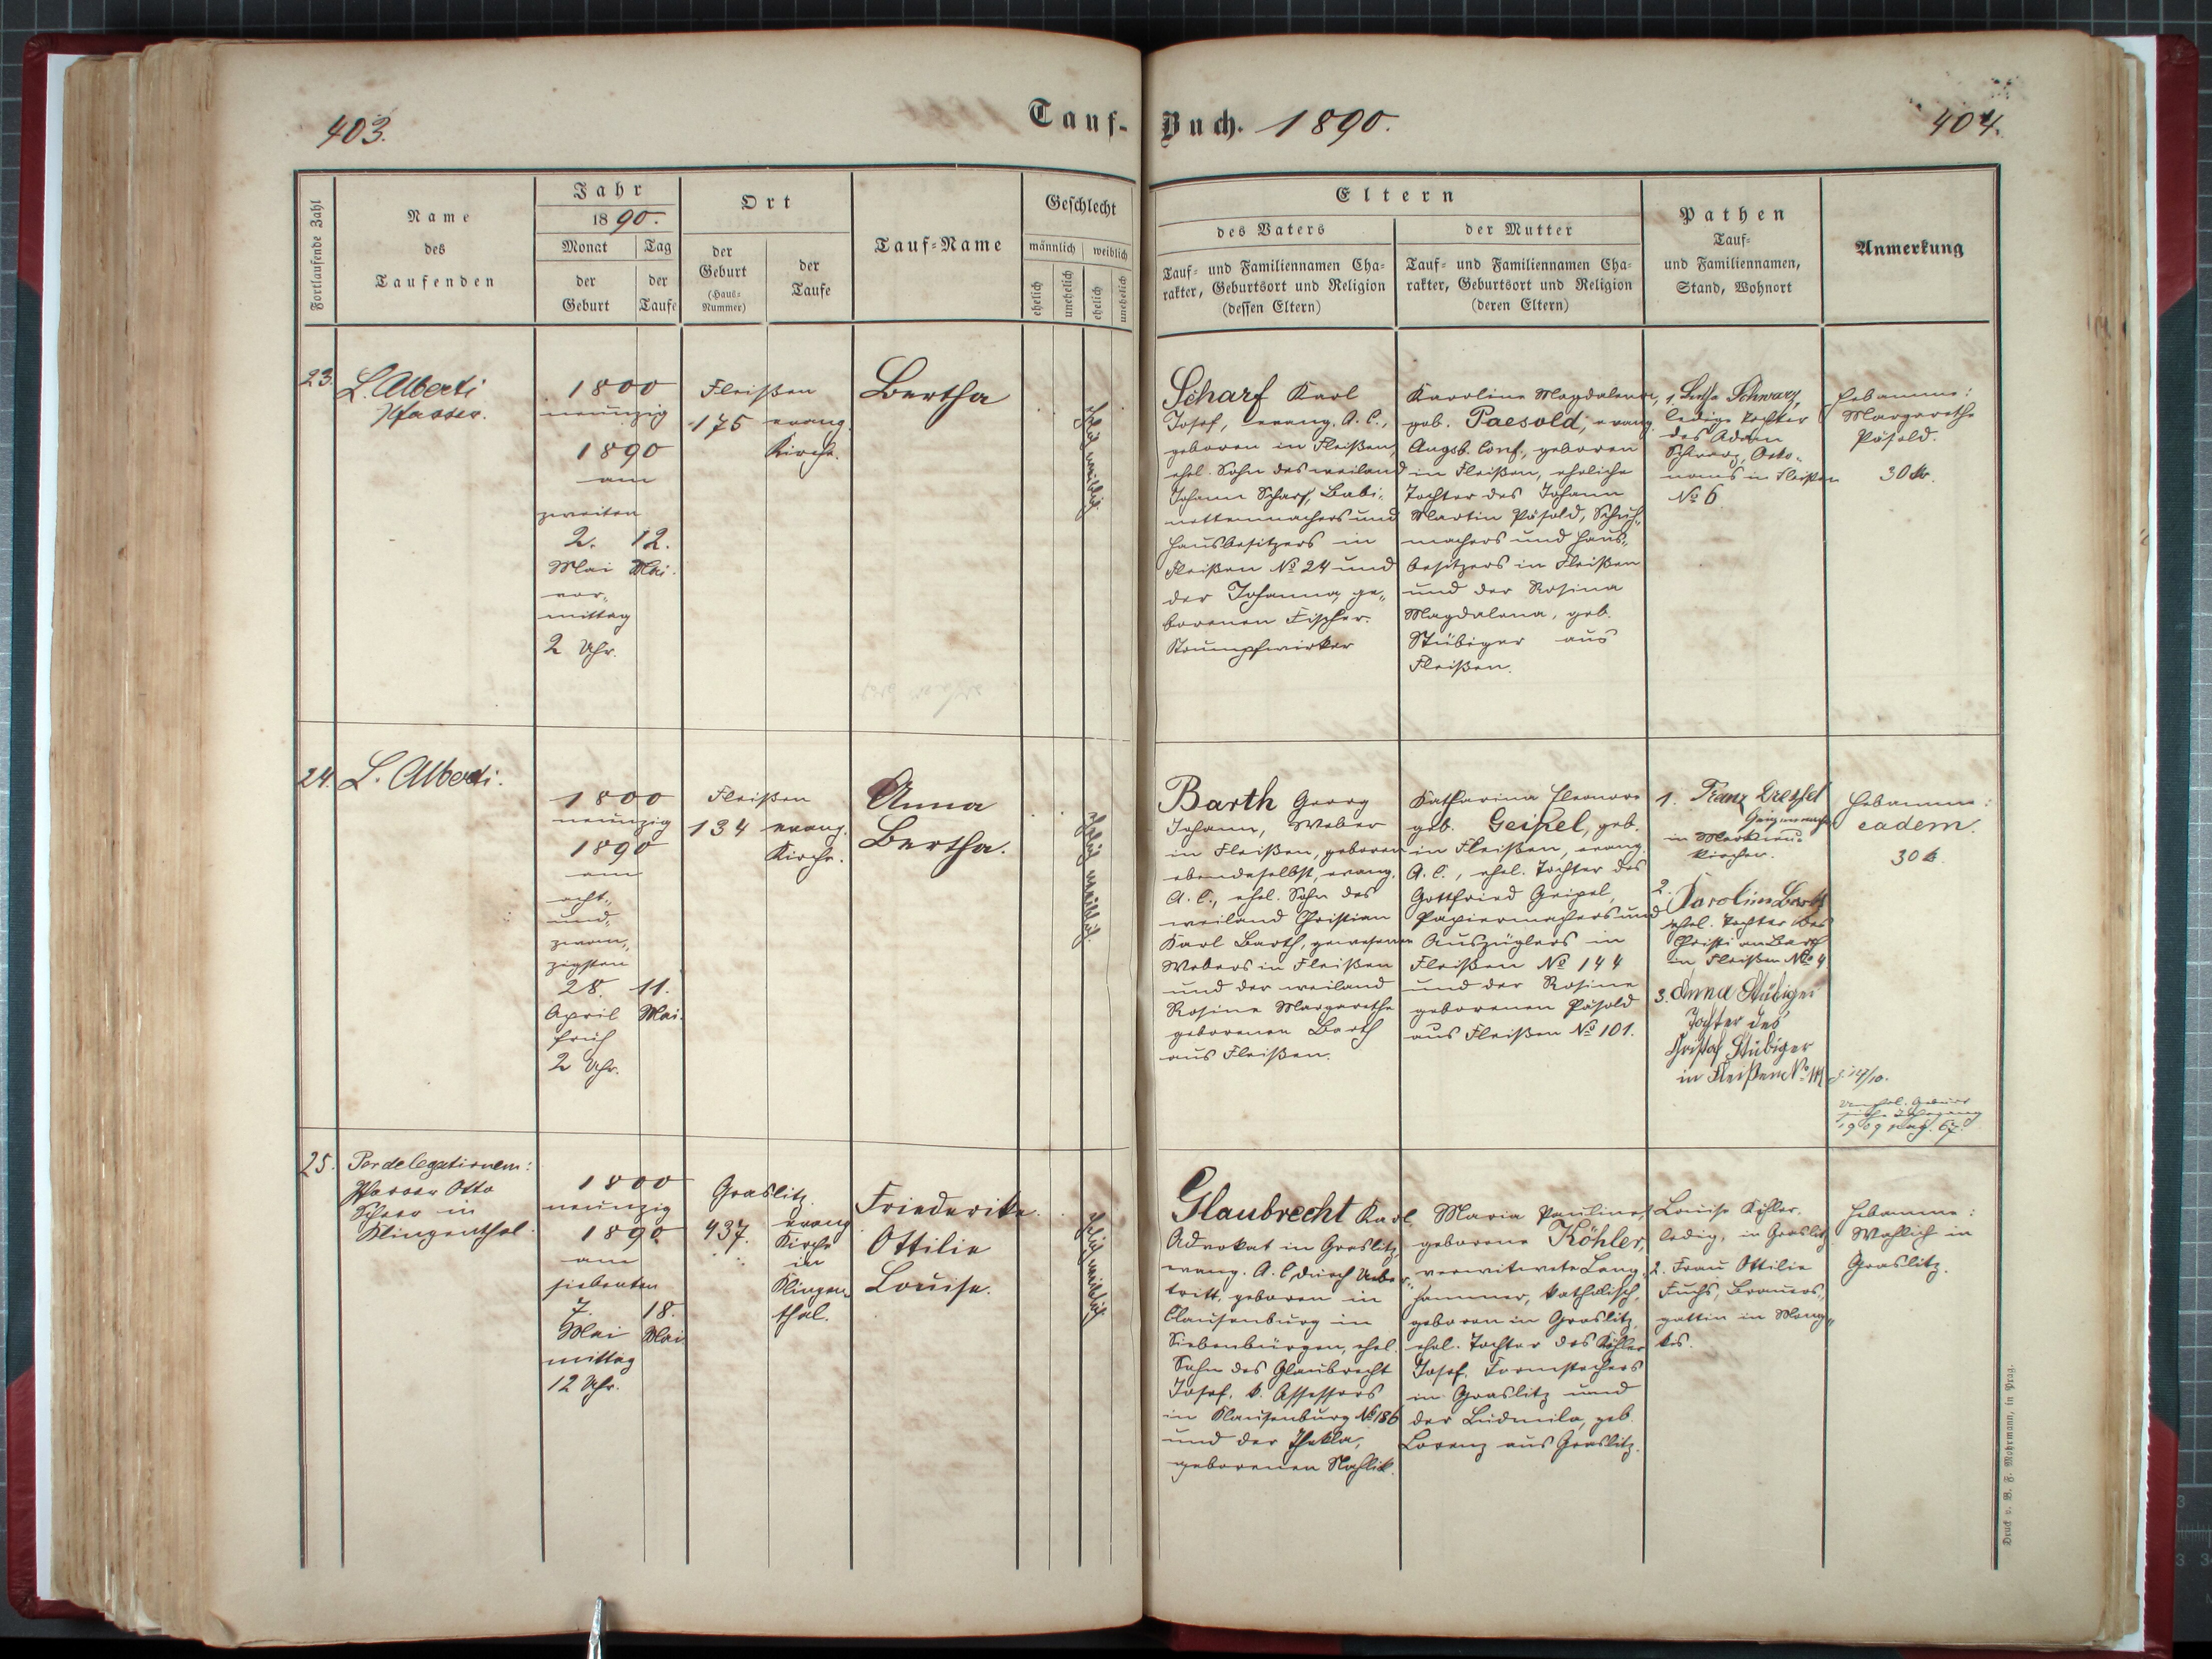 403.
Tauf-
Buch. 1890.
404.
Fortlaufende Zahl
Name
des
Taufenden
Jahr
1890.
Monat
der
Geburt
Tag
der
Taufe
Ort
der
Geburt
(Haus-
Nummer)
der
Taufe
Tauf-Name
Geschlecht
männlich
weiblich
ehelich
unehelich
ehelich
unehelich
Eltern
des Vaters
Tauf- und Familiennamen Cha-
rakter, Geburtsort und Religion
(dessen Eltern)
der Mutter
Tauf- und Familiennamen Cha-
rakter, Geburtsort und Religion
(deren Eltern)
Pathen
Tauf-
und Familiennamen,
Stand, Wohnort
Anmerkung
23.
L. Alberti
Pfarrer.
1800
neunzig
1890
am
zweiten
2.
Mai
vor„
mittag
2 Uhr.
12.
Mai.
Fleißen
175
evang.
Kirche.
Bertha
ehelich weiblich
Scharf Karl
Josef, evang. A. C.,
geboren in Fleißen,
ehel. Sohn des weiland
Johann Scharf, Babi-
nettenmachers und
Hausbesitzers in
Fleißen No 24 und
der Johanna, ge„
borenen Fischer.
Strumpfwirker
Karoline Magdalena,
geb. Paesold, evang.
Augsb. Conf., geboren
in Fleißen, eheliche
Tochter des Johann
Martin Päsold, Schuh„
machers und Haus„
besitzers in Fleißen
und der Rosina
Magdalena, geb.
Stübiger aus
Fleißen.
1. Schwarz,
ledige Tochter
des Adam
Schwarz, Oeko-
noms in Fleißen
No 6
Hebamme:
Margarethe
Päsold.
30 kr.
24.
L. Alberti.
1800
neunzig
1890
am
acht„
und„
zwan„
zigsten
28.
April
früh
2 Uhr.
11.
Mai.
Fleißen
134
evang.
Kirche.
Anna
Bertha.
ehelich weiblich.
Barth Georg
Johann, Weber
in Fleißen, geboren
ebendaselbst, evang.
A. C., ehel. Sohn des
weiland Christian
Karl Barth, gewesenen
Webers in Fleißen
und der weiland
Rosine Margarethe
geborenen Barth
aus Fleißen.
Katharina Eleonore
geb. Geipel, geb.
in Fleißen, evang.
A. C., ehel. Tochter des
Gottfried Geipel,
Papiermachers und
Auszüglers in
Fleißen No 144
und der Rosine
geborenen Päsold
aus Fleißen No 101.
1. Franz Drechsel
Geigenmacher
in Markneu-
kirchen.
2. Karolina Barth
ehel. Tochter des
Christian Barth
in Fleißen No 4
3. Anna Stübiger
Tochter des
Christof Stübiger
in Fleißen No
Hebamme:
eadem.
30 k.
14/10.
1909 pag. 67.
25.
Per delegationem:
Pfarrer Otto
in
Klingenthal.
1800
neunzig
1890
am
siebenten
7.
Mai
mittag
12 Uhr.
18.
Mai
Graslitz.
437.
evang
Kirche
in
Klingen„
thal.
Friederike
Ottilie
Louise.
ehelich weiblich
Glaubrecht Karl
Advokat in Graslitz,
evang. A. C. durch Ueber„
tritt, geboren in
Clausenburg in
Siebenbürgen, ehel.
Sohn des Glaubrecht
Josef, k. Assessors
in Klausenburg No 186
und der Thekla,
geborenen Nahlik.
Maria Pauline
geborene Köhler,
verwitwete Lang„
hammer, katholisch,
geboren in Graslitz,
ehel. Tochter des Köhler
Josef, Formstechers
in Graslitz und
der Ludmila, geb.
Lorenz aus Graslitz.
1. Louise Köhler,
ledig, in Graslitz
2. Frau Ottilie
Fuchs, Brauers„
gattin in
Hebamme:
Wohlich in
Graslitz.
Druck v. B. F. Mohrmann, in Prag.